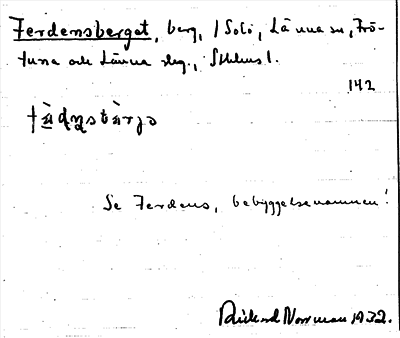 Ferdensberget, berg, /Solö, Länna sn, Frö-
tuna och Länna slg., Sthlms l.
142
Se Ferdens, bebyggelsenamnen!
Rickard Norrman 1932.